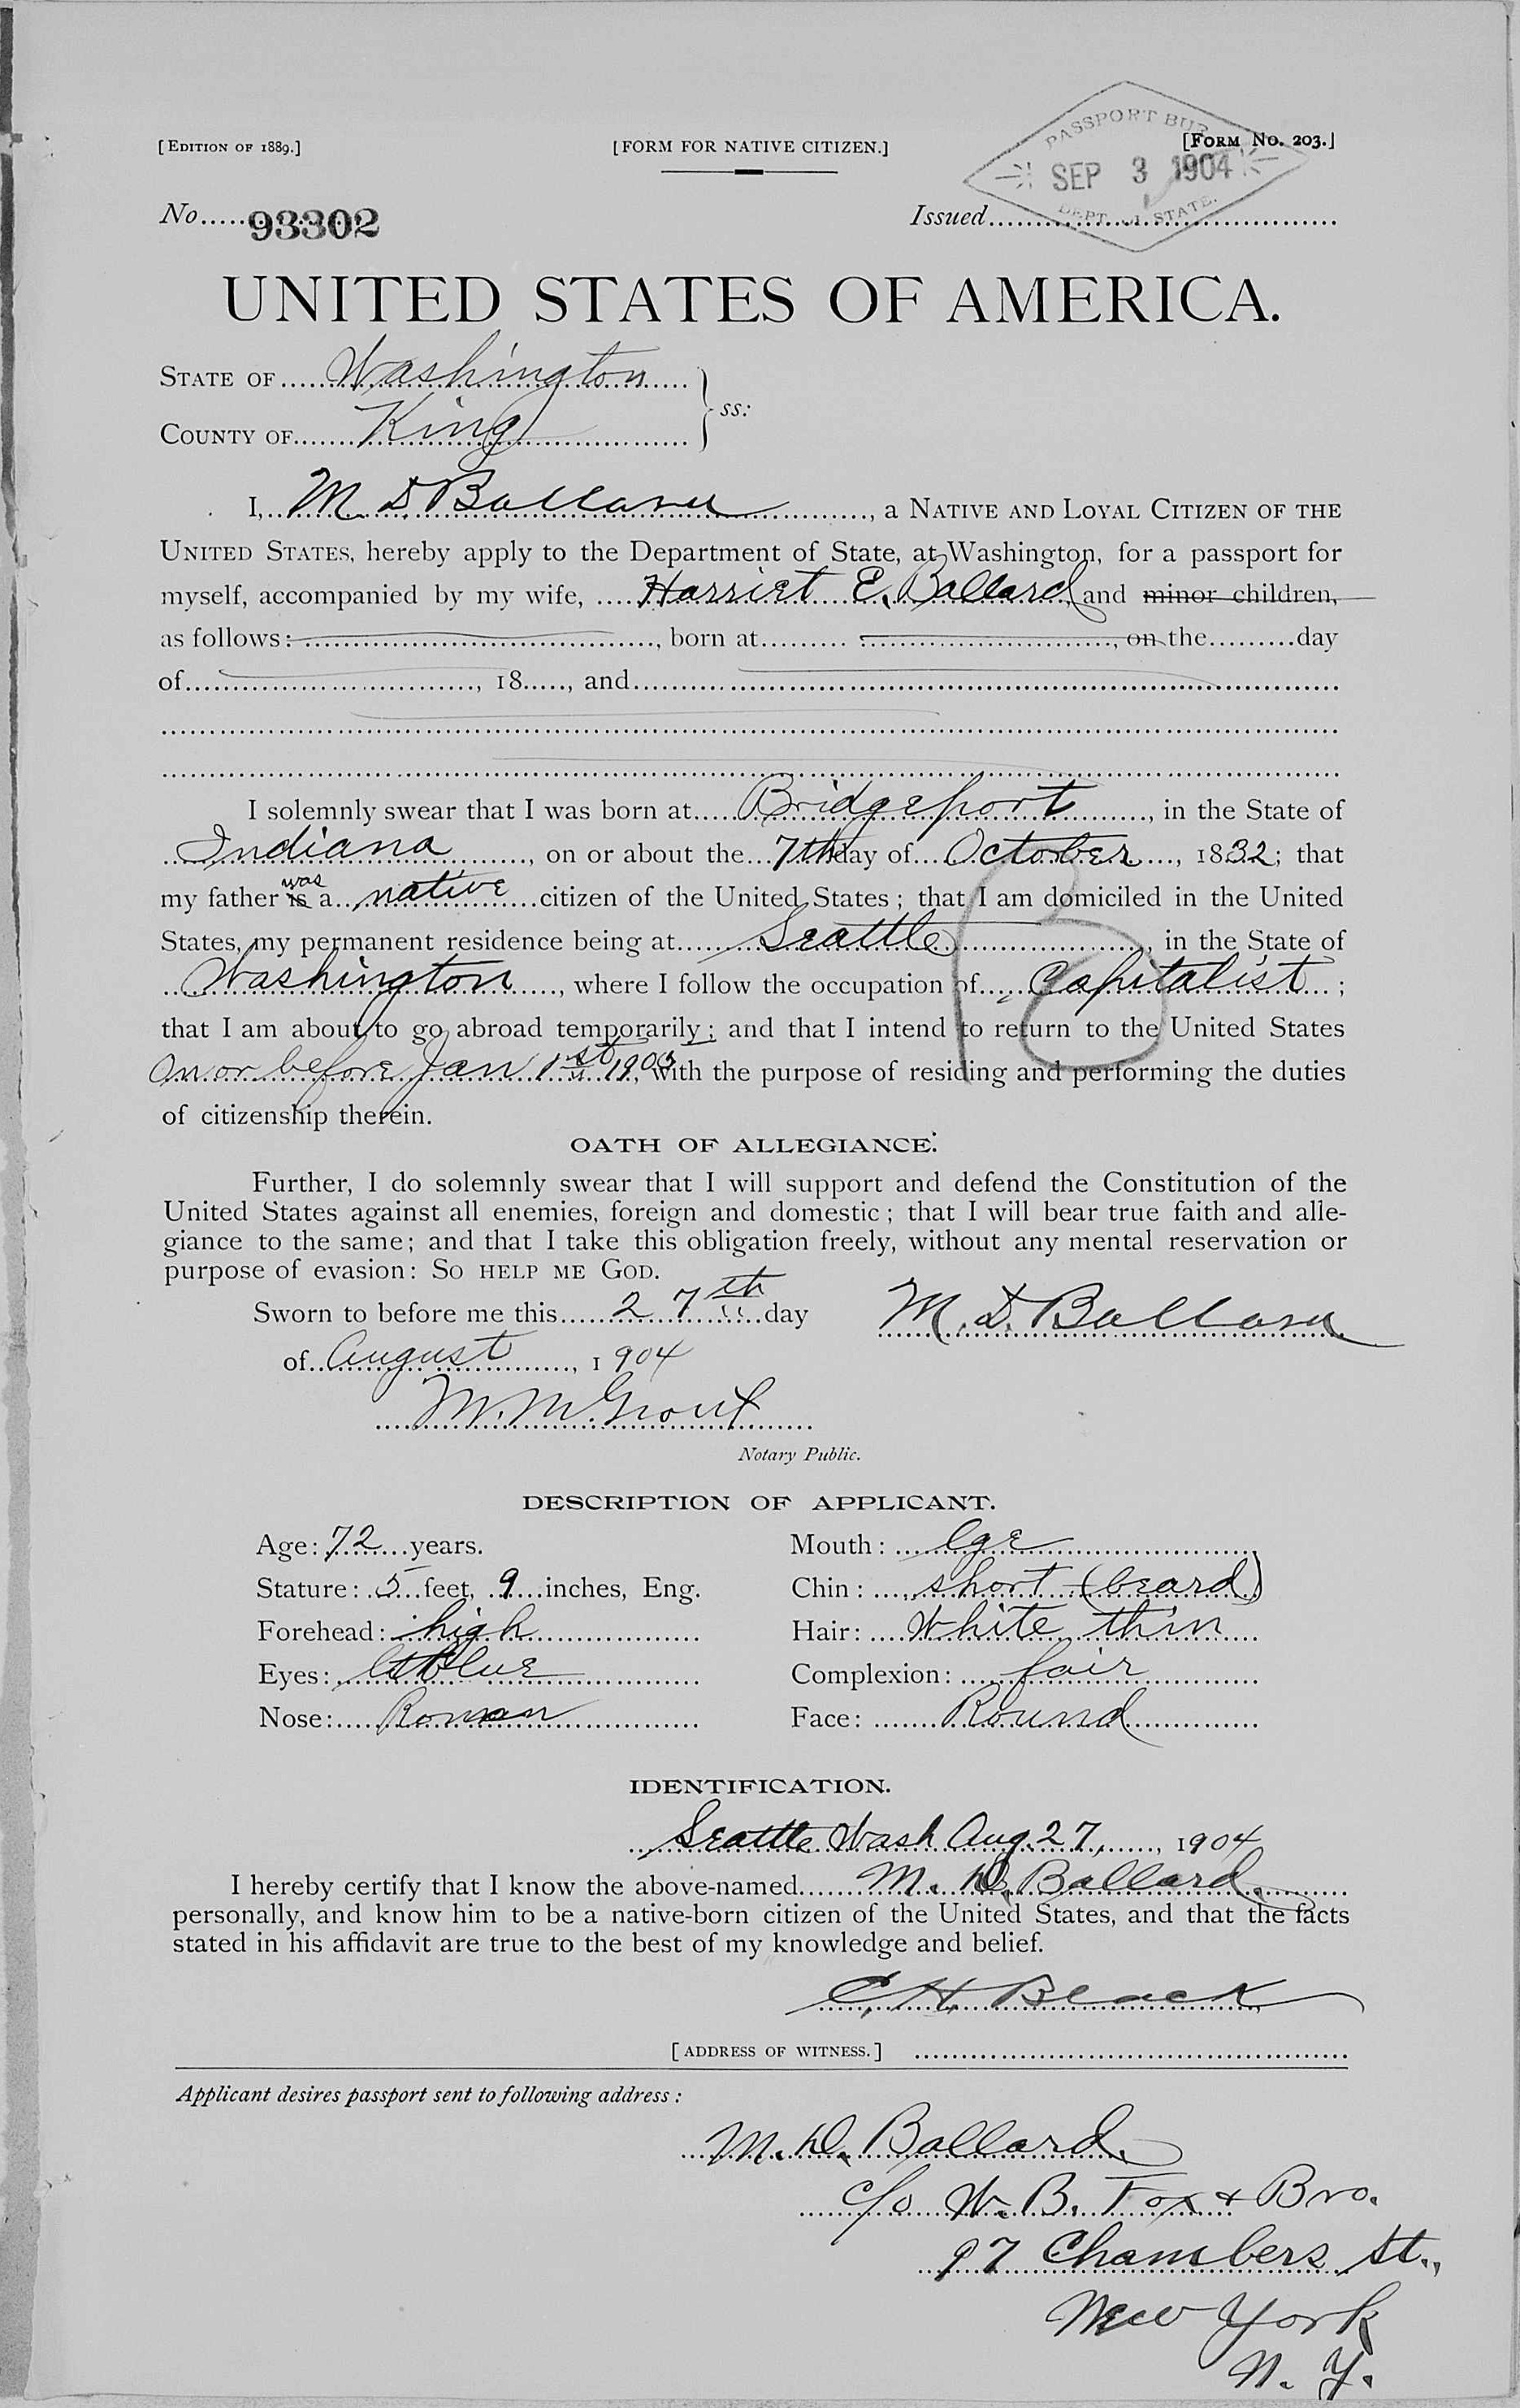 [EDITION OF 1889.] [FORM FOR NATIVE CITIZEN.] [FORM NO. 203.]
PASSPORT
SEP 3 1904
DEPT. OF STATE.
No. 93302 Issued
UNITED STATES OF AMERICA.
STATE OF Washington
COUNTY OF King ss:
I, M. D. Ballard, a NATIVE AND LOYAL CITIZEN OF THE
UNITED STATES, hereby apply to the Department of State, at Washington, for a passport for
myself, accompanied by my wife, Harriet E. Ballard, and minor children,
as follows: , born at , on the day
of , 18 , and
I solemnly swear that I was born at Bridgeport, in the State of
Indiana, on or about the 7th day of October, 1832; that
my father is was a native citizen of the United States; that I am domiciled in the United
States, my permanent residence being at Seattle, in the State of
Washington, where I follow the occupation of Capitalist;
that I am about to go abroad temporarily; and that I intend to return to the United States
On or before Jan 1st, with the purpose of residing and performing the duties
of citizenship therein.
B
OATH OF ALLEGIANCE.
Further, I do solemnly swear that I will support and defend the Constitution of the
United States against all enemies, foreign and domestic; that I will bear true faith and alle-
giance to the same; and that I take this obligation freely, without any mental reservation or
purpose of evasion: SO HELP ME GOD.
Sworn to before me this 27th day M. D. Ballard
of August, 1904
M. M. Grout
Notary Public.
DESCRIPTION OF APPLICANT.
Age: 72 years. Mouth: lge
Stature: 5 feet, 9 inches, Eng. Chin: short (beard)
Forehead: high Hair: White thin
Eyes: lt Blue Complexion: fair
Nose: Roman Face: Round
IDENTIFICATION.
Seattle Wash Aug. 27, 1904
I hereby certify that I know the above-named M. D. Ballard
personally, and know him to be a native-born citizen of the United States, and that the facts
stated in his affidavit are true to the best of my knowledge and belief.
C. H. Black
[ADDRESS OF WITNESS.]
Applicant desires passport sent to following address:
M. D. Ballard
c/o W. B. Fox & Bro.
97 Chambers St.,
New York
N. Y.